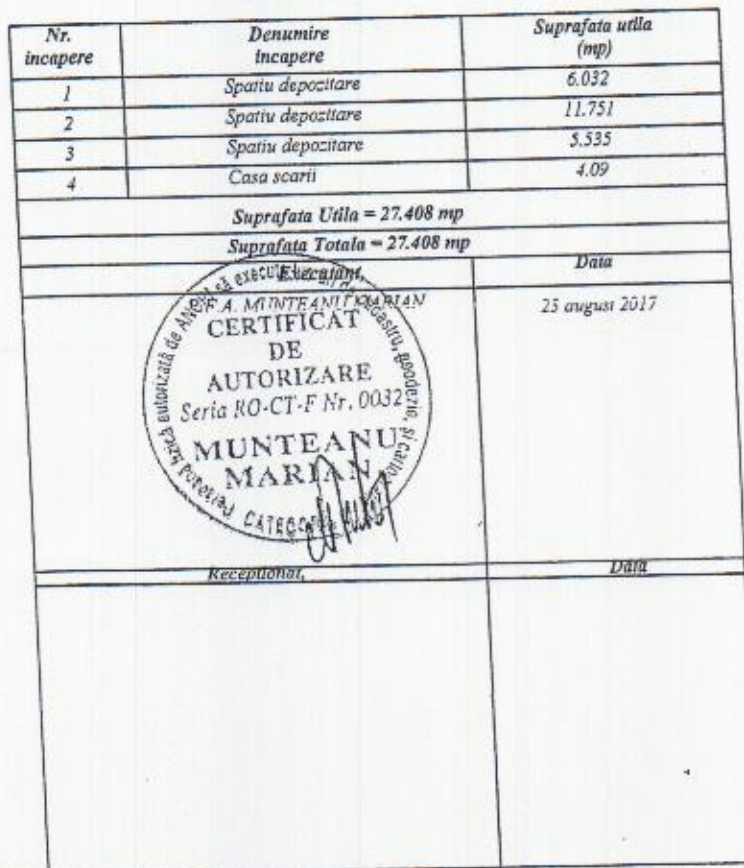 Nr. incapere Denumire incapere Suprafata utila (mp)
1 Spatiu depozitare 6.032
2 Spatiu depozitare 11.751
3 Spatiu depozitare 5.535
4 Casa scarii 4.09
Suprafata Utila = 27.408 mp
Suprafata Totala = 27.408 mp
Executant, Data
P.F.A. MUNTEANU MARIAN 25 august 2017
Persoană fizică autorizată de ANCPI să execute lucrări de cadastru, geodezie, și cartografie
CERTIFICAT
DE
AUTORIZARE
Seria RO-CT-F Nr. 0032
MUNTEANU
MARIAN
CATEGORIA
Receptionat, Data